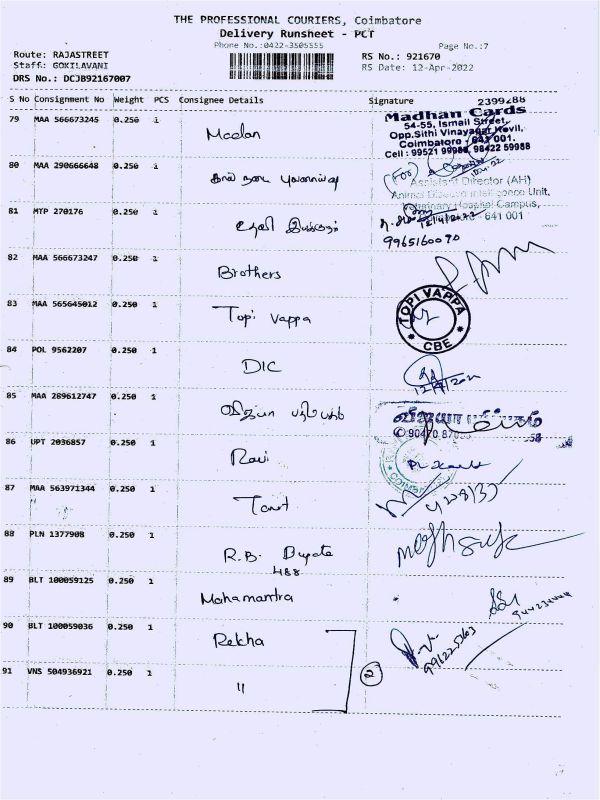 THE PROFESSIONAL COURIERS, Coimbatore
Delivery Runsheet - PCT
Phone No.:0422-3505555
Page No.:7
Route: RAJASTREET
Staff: GOKILAVANI
DRS No.: DCJB92167007
RS No.: 921670
RS Date: 12-Apr-2022
S No Consignment No Weight PCS Consignee Details Signature
2399288
79 MAA 566673245 0.250 1
Madhan Cards
54-55, Ismail Street,
Opp.Sithi Vinayagar Kovil,
Coimbatore - 641 001.
Cell : 99521 99988, 98422 59988
80 MAA 290666648 0.250 1
(For)
Assistant Director (AH)
Animal Disease Intelligence Unit,
Veterinary Hospital Campus,
- 641 001
81 MYP 270176 0.250 1
12/4/22
9965160090
82 MAA 566673247 0.250 1 Brothers
83 MAA 565645012 0.250 1 Topi Vappa
TOPI VAPPA
* CBE *
84 POL 9562207 0.250 1 DIC
85 MAA 289612747 0.250 1
விஜயா பதிப்பகம்
86 UPT 2036857 0.250 1 Ravi
87 MAA 563971344 0.250 1
88 PLN 1377908 0.250 1 R.B.
488
89 BLT 100059125 0.250 1 Mahamantra
90 BLT 100059036 0.250 1 Rekha
91 VNS 504936921 0.250 1 "
2